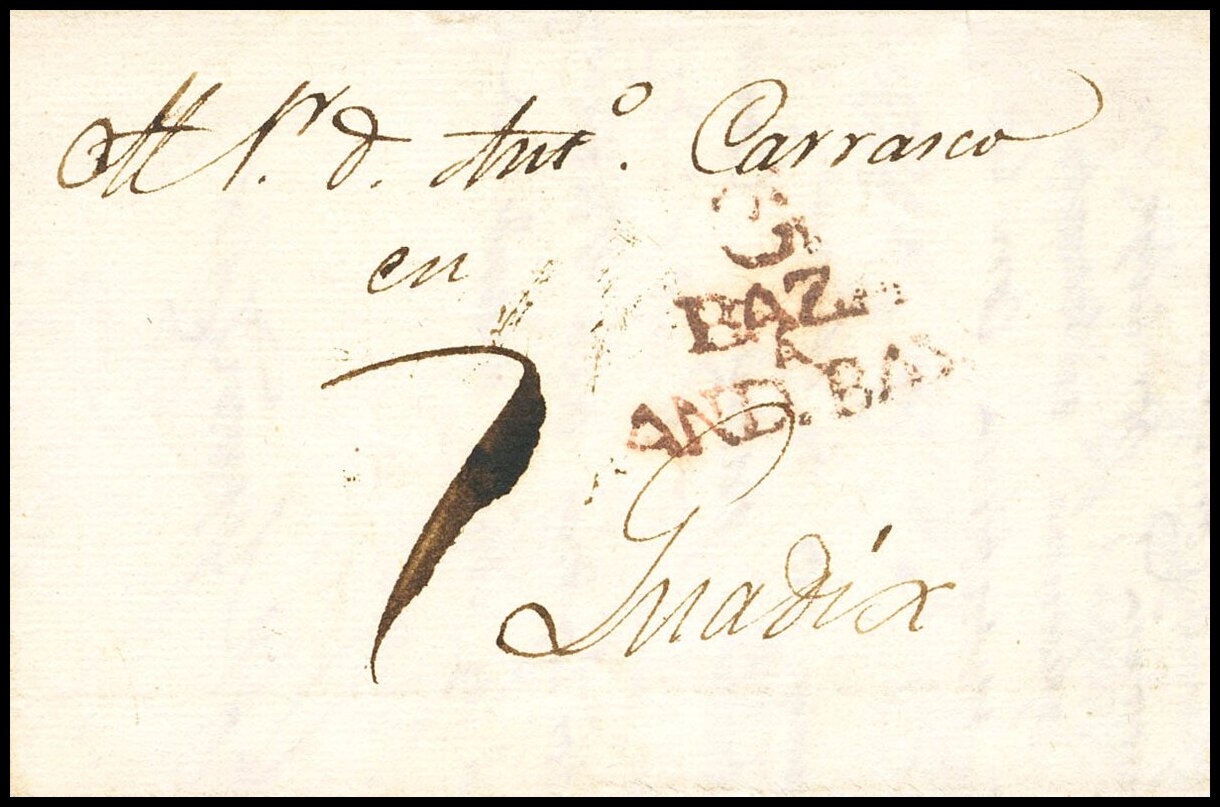 Al Sr. d. Antº. Carrasco
en
G
BAZA
A
AND. BAXA
7
Guadix